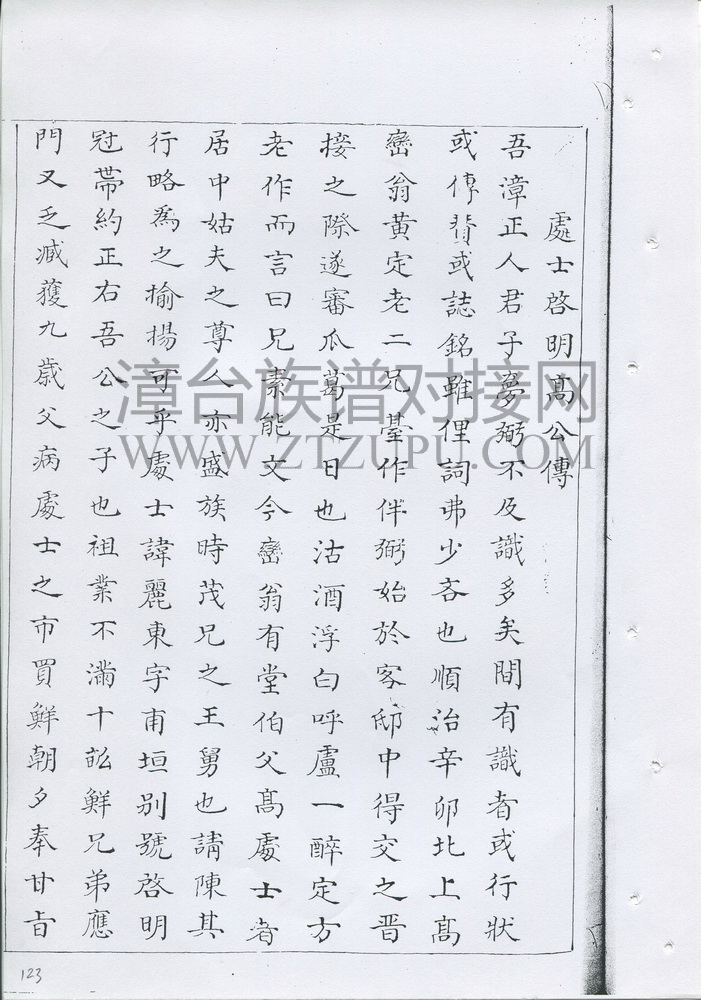 處士啓明髙公傳
吾漳正人君子夢弼不及識多矣間有識者或行狀
或傳賛或誌銘雖俚詞弗少吝也順治辛卯北上髙
巒翁黄定老二兄䑓作伴弼始於客邸中得交之晋
接之際遂審瓜葛是日也沽酒浮白呼盧一醉定方
老作而言曰兄素能文今巒翁有堂伯父髙處士者
居中姑夫之尊人亦盛族時茂兄之王舅也請陳其
行略為之揄揚可乎處士諱麗東字甫垣别號啓明
冠帶約正右吾公之子也祖業不滿十畝鮮兄弟應
門又乏臧獲九歲父病處士之市買鮮朝夕奉甘旨
漳台族谱对接网
WWW.ZTZUPU.COM
123